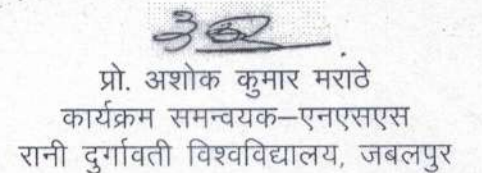 प्रो. अशोक कुमार मराठे
कार्यक्रम समन्वयक–एनएसएस
रानी दुर्गावती विश्वविद्यालय, जबलपुर